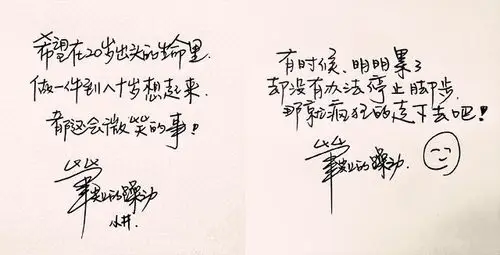 希望在20岁出头的生命里
做一件到八十岁想起来
都还会微笑的事！
的躁动
小井
有时候、明明累了
却没有办法停止脚步
那就疯狂的走下去吧！
的躁动